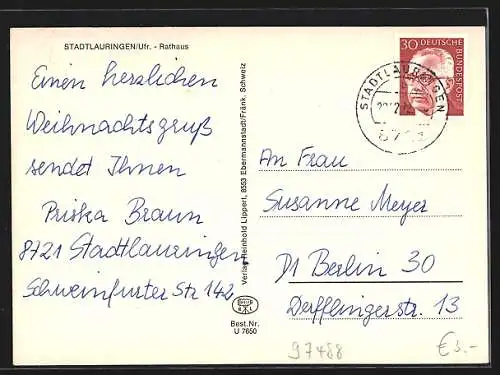 STADTLAURINGEN/Ufr. - Rathaus
Einen herzlichen
Weihnachtsgruß
sendet Ihnen
Priska Braun
8721 Stadtlauringen
Schweinfurter Str 142
Verlag Reinhold Lippert, 8553 Ebermannstadt/Fränk. Schweiz
Best.Nr.
U 7650
30 DEUTSCHE
BUNDESPOST
STADTLAURINGEN
An Frau
Susanne Meyer
D1 Berlin 30
Derfflingerstr. 13
97488
€3.-